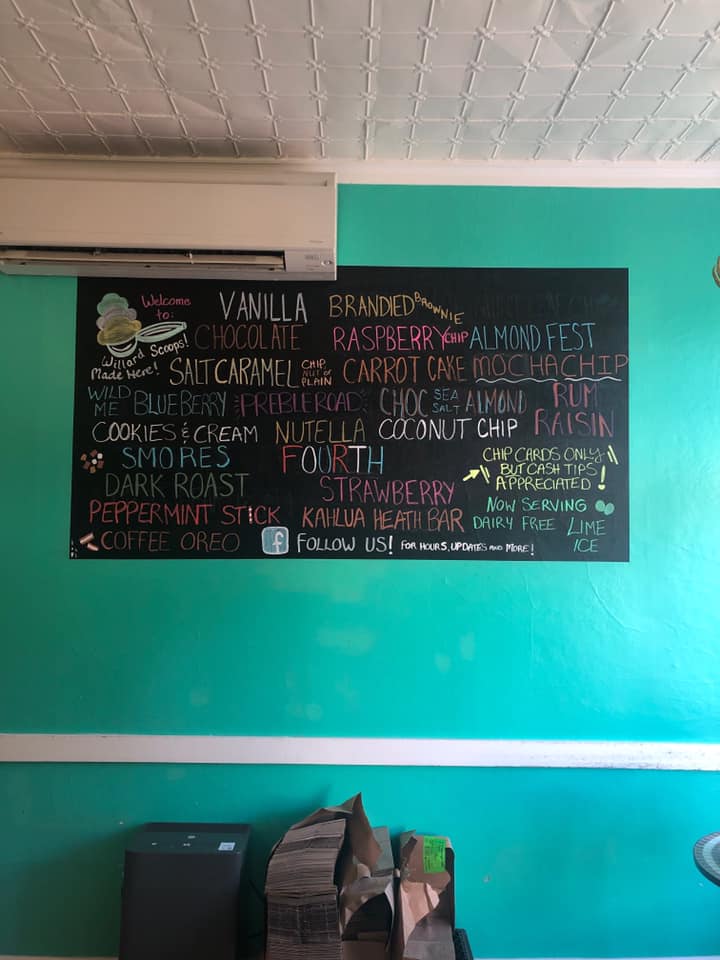 Welcome to: VANILLA BRANDIED BROWNIE
Willard Scoops! CHOCOLATE RASPBERRY CHIP ALMOND FEST
Made Here! SALT CARAMEL CHIP, NUT or PLAIN CARROT CAKE MOCHACHIP
WILD ME BLUEBERRY PREBLE ROAD CHOC SEA SALT ALMOND RUM RAISIN
COOKIES & CREAM NUTELLA COCONUT CHIP
SMORES FOURTH CHIP CARDS ONLY
BUT CASH TIPS
APPRECIATED!
DARK ROAST STRAWBERRY
PEPPERMINT STICK KAHLUA HEATH BAR NOW SERVING
DAIRY FREE LIME ICE
COFFEE OREO f FOLLOW US! FOR HOURS, UPDATES AND MORE!